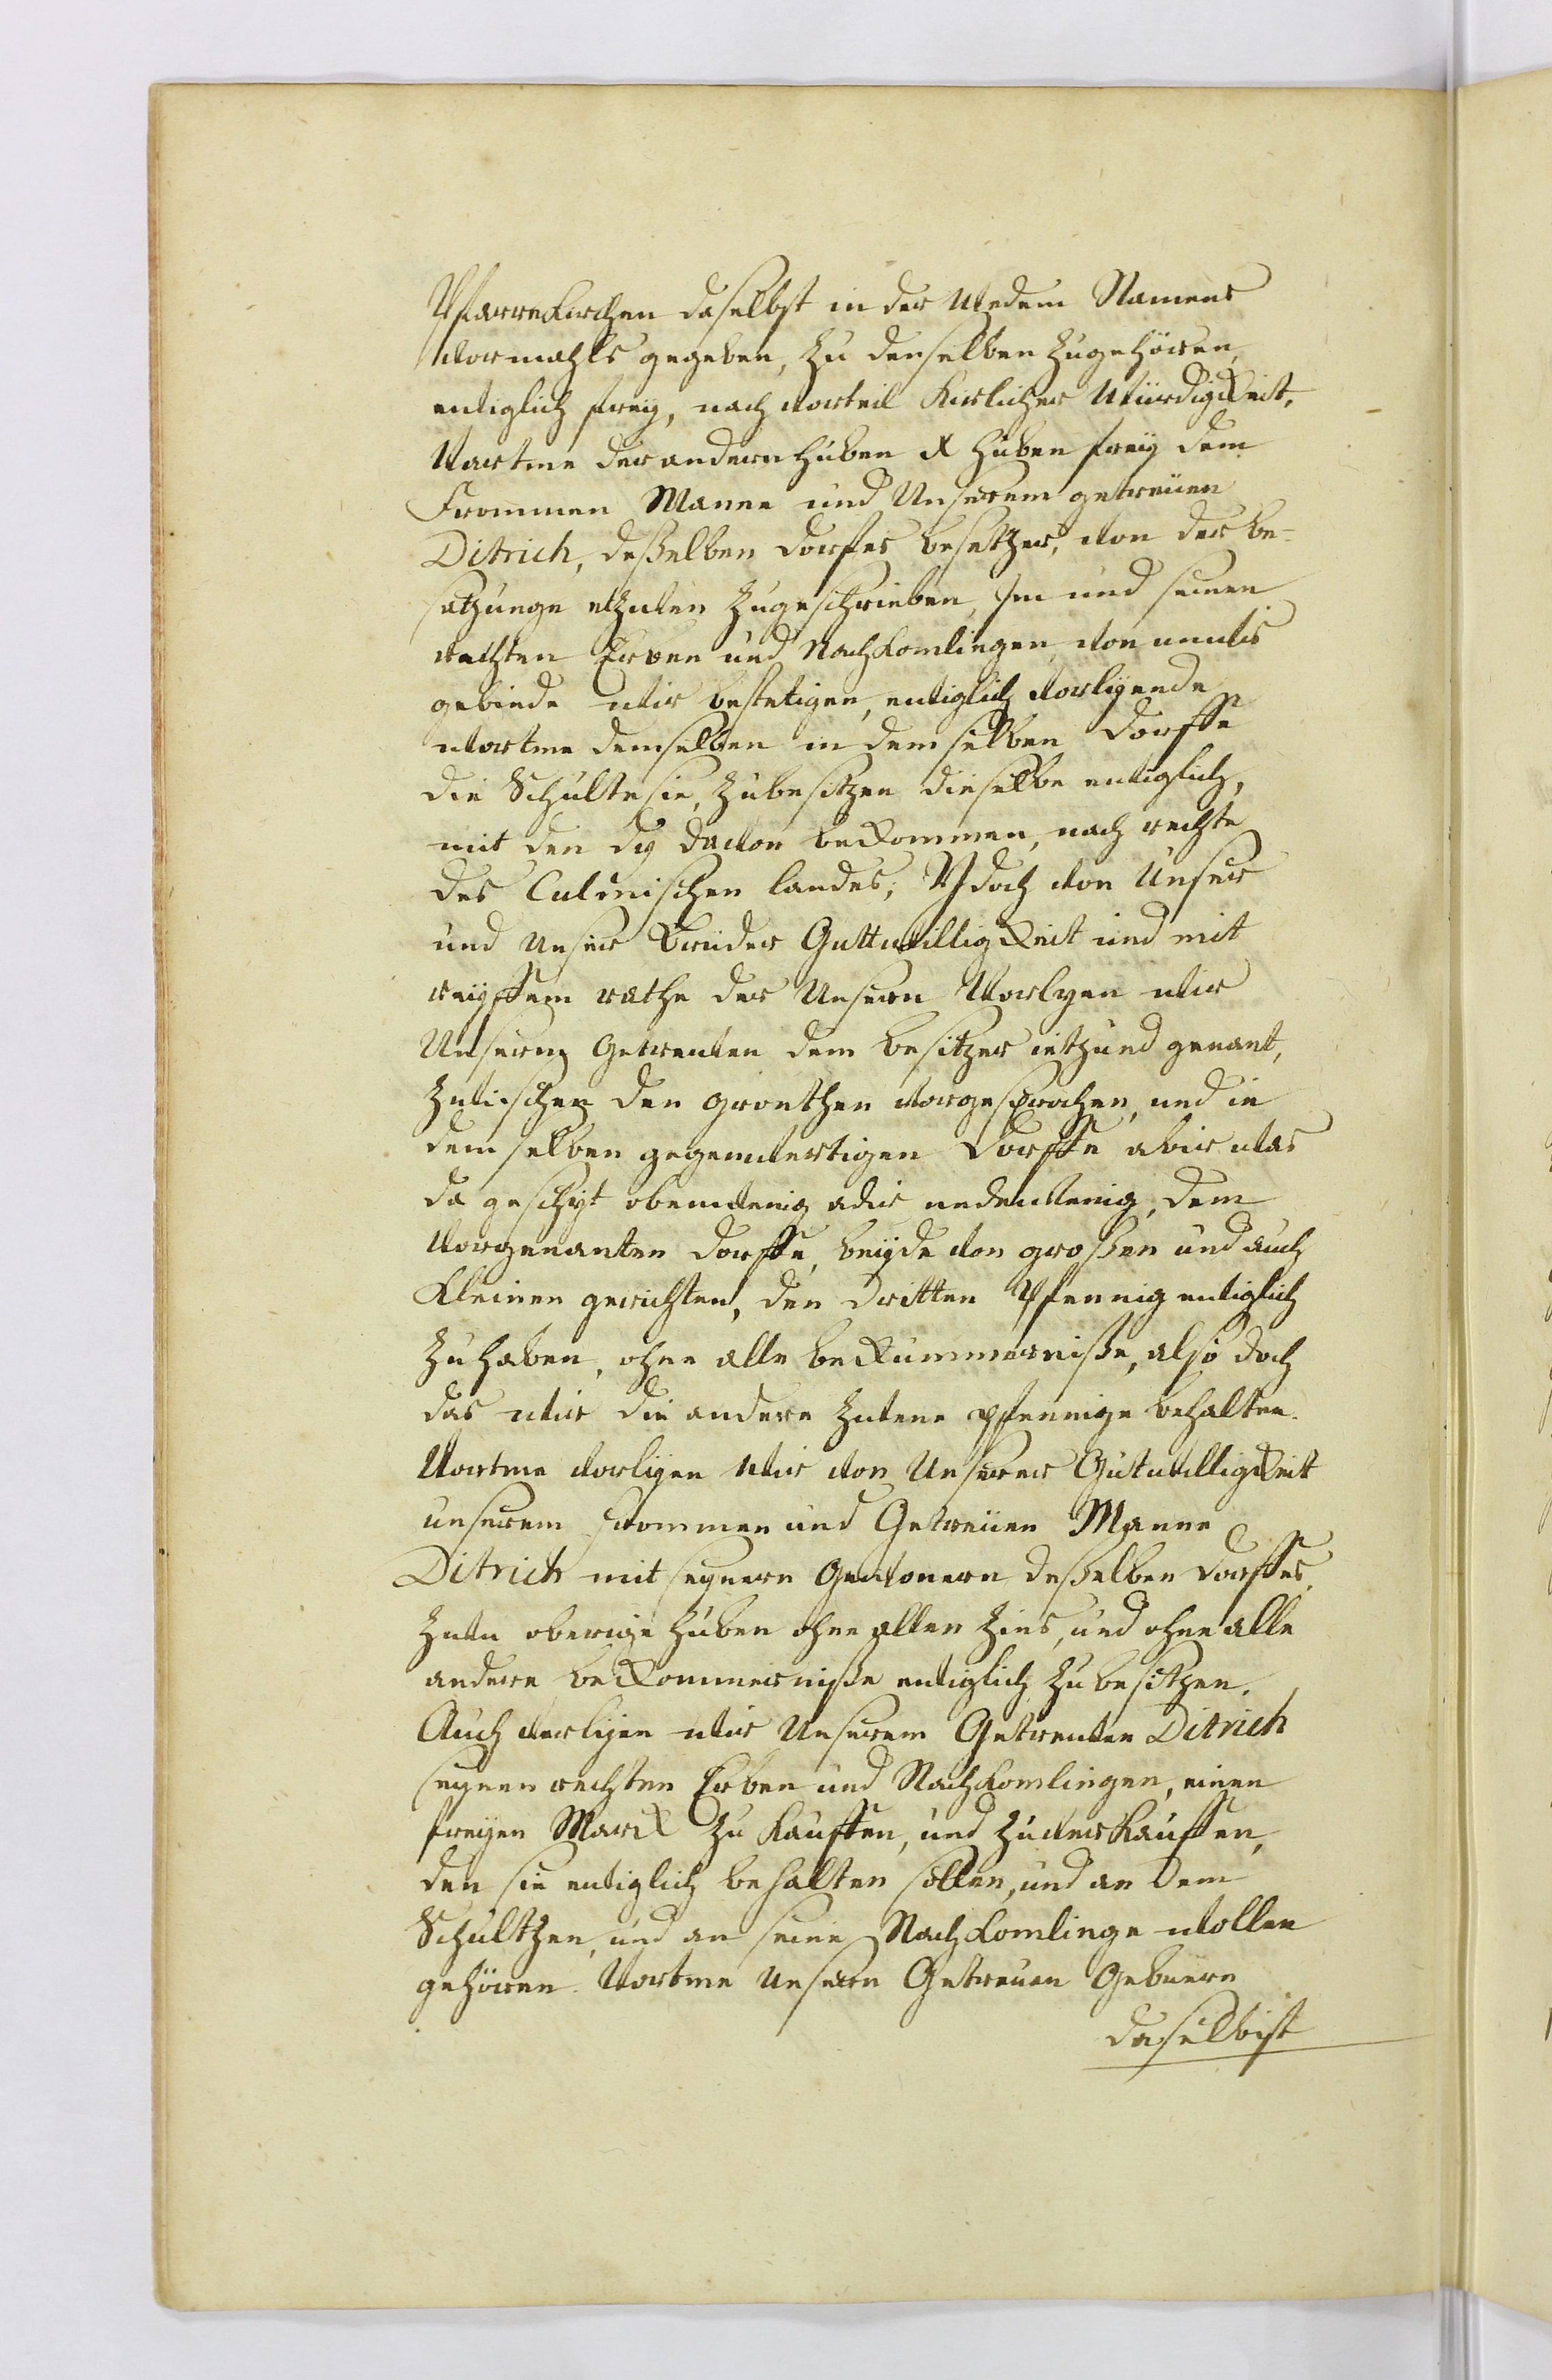 Pfarrekirchen daselbst in der Wedem Namens
vormahls gegeben, zu denselben zugehören,
ewiglich frey, nach vorteil kirlicher Würdigkeit.
Vortme der andern huben X huben frey dem
Frommen Manne und Unserem getreüen
Ditrich, deßelben dorfes besetzer, von der be-
satzunge etzwen zugeschrieben, Im und seinen
rechten Erben und Nachkomlingen, von
gebinde wir bestetigen, ewiglich vorlyende
vortme demselben in dem selben Dorffe
die Schultesie, zubesitzen dieselbe ewiglich,
mit den dy davon bekommen, nach rechte
des Culmischen landes; Ydoch von Unser
und Unser Bruder Guttwilligkeit und mit
reyffem rathe der Unsern Vorlyen wir
Unserm Getrewen dem besitzer itzund genant,
zwischen den grentzen vorgesprochen, und in
dem selben gegenwertigen Dorffe abir was
da geschyt obenwenig adir nedenwenig, dem
vorgenanten Dorffe, beyde von großen und auch
kleinen gerichten, den dritten Pfennig ewiglich
zu haben, ohne alle bekummerniße, also doch
das wir die andern zwene pfennige behalten.
Vortme vorlyen wir von Unserer Gutwilligkeit
unserem frommen und Getreüen Manne
Ditrich mit seynen Gewonern deßelben Dorffes,
zwu oberige huben ohne allen Zins, und ohne alle
andere bekommerniße ewiglich zu besitzen.
Auch verlyen wir Unserem Getrewen Ditrich
seynen rechten Erben und Nachkomlingen, einen
freyen Mark zu kauffen, und zuverkauffen,
den sie ewiglich behalten sollen, und an dem
Schultzen, und an seine Nachkomlinge wollen
gehören. Vortme Unsern Getreuen Gebuern
daselbist